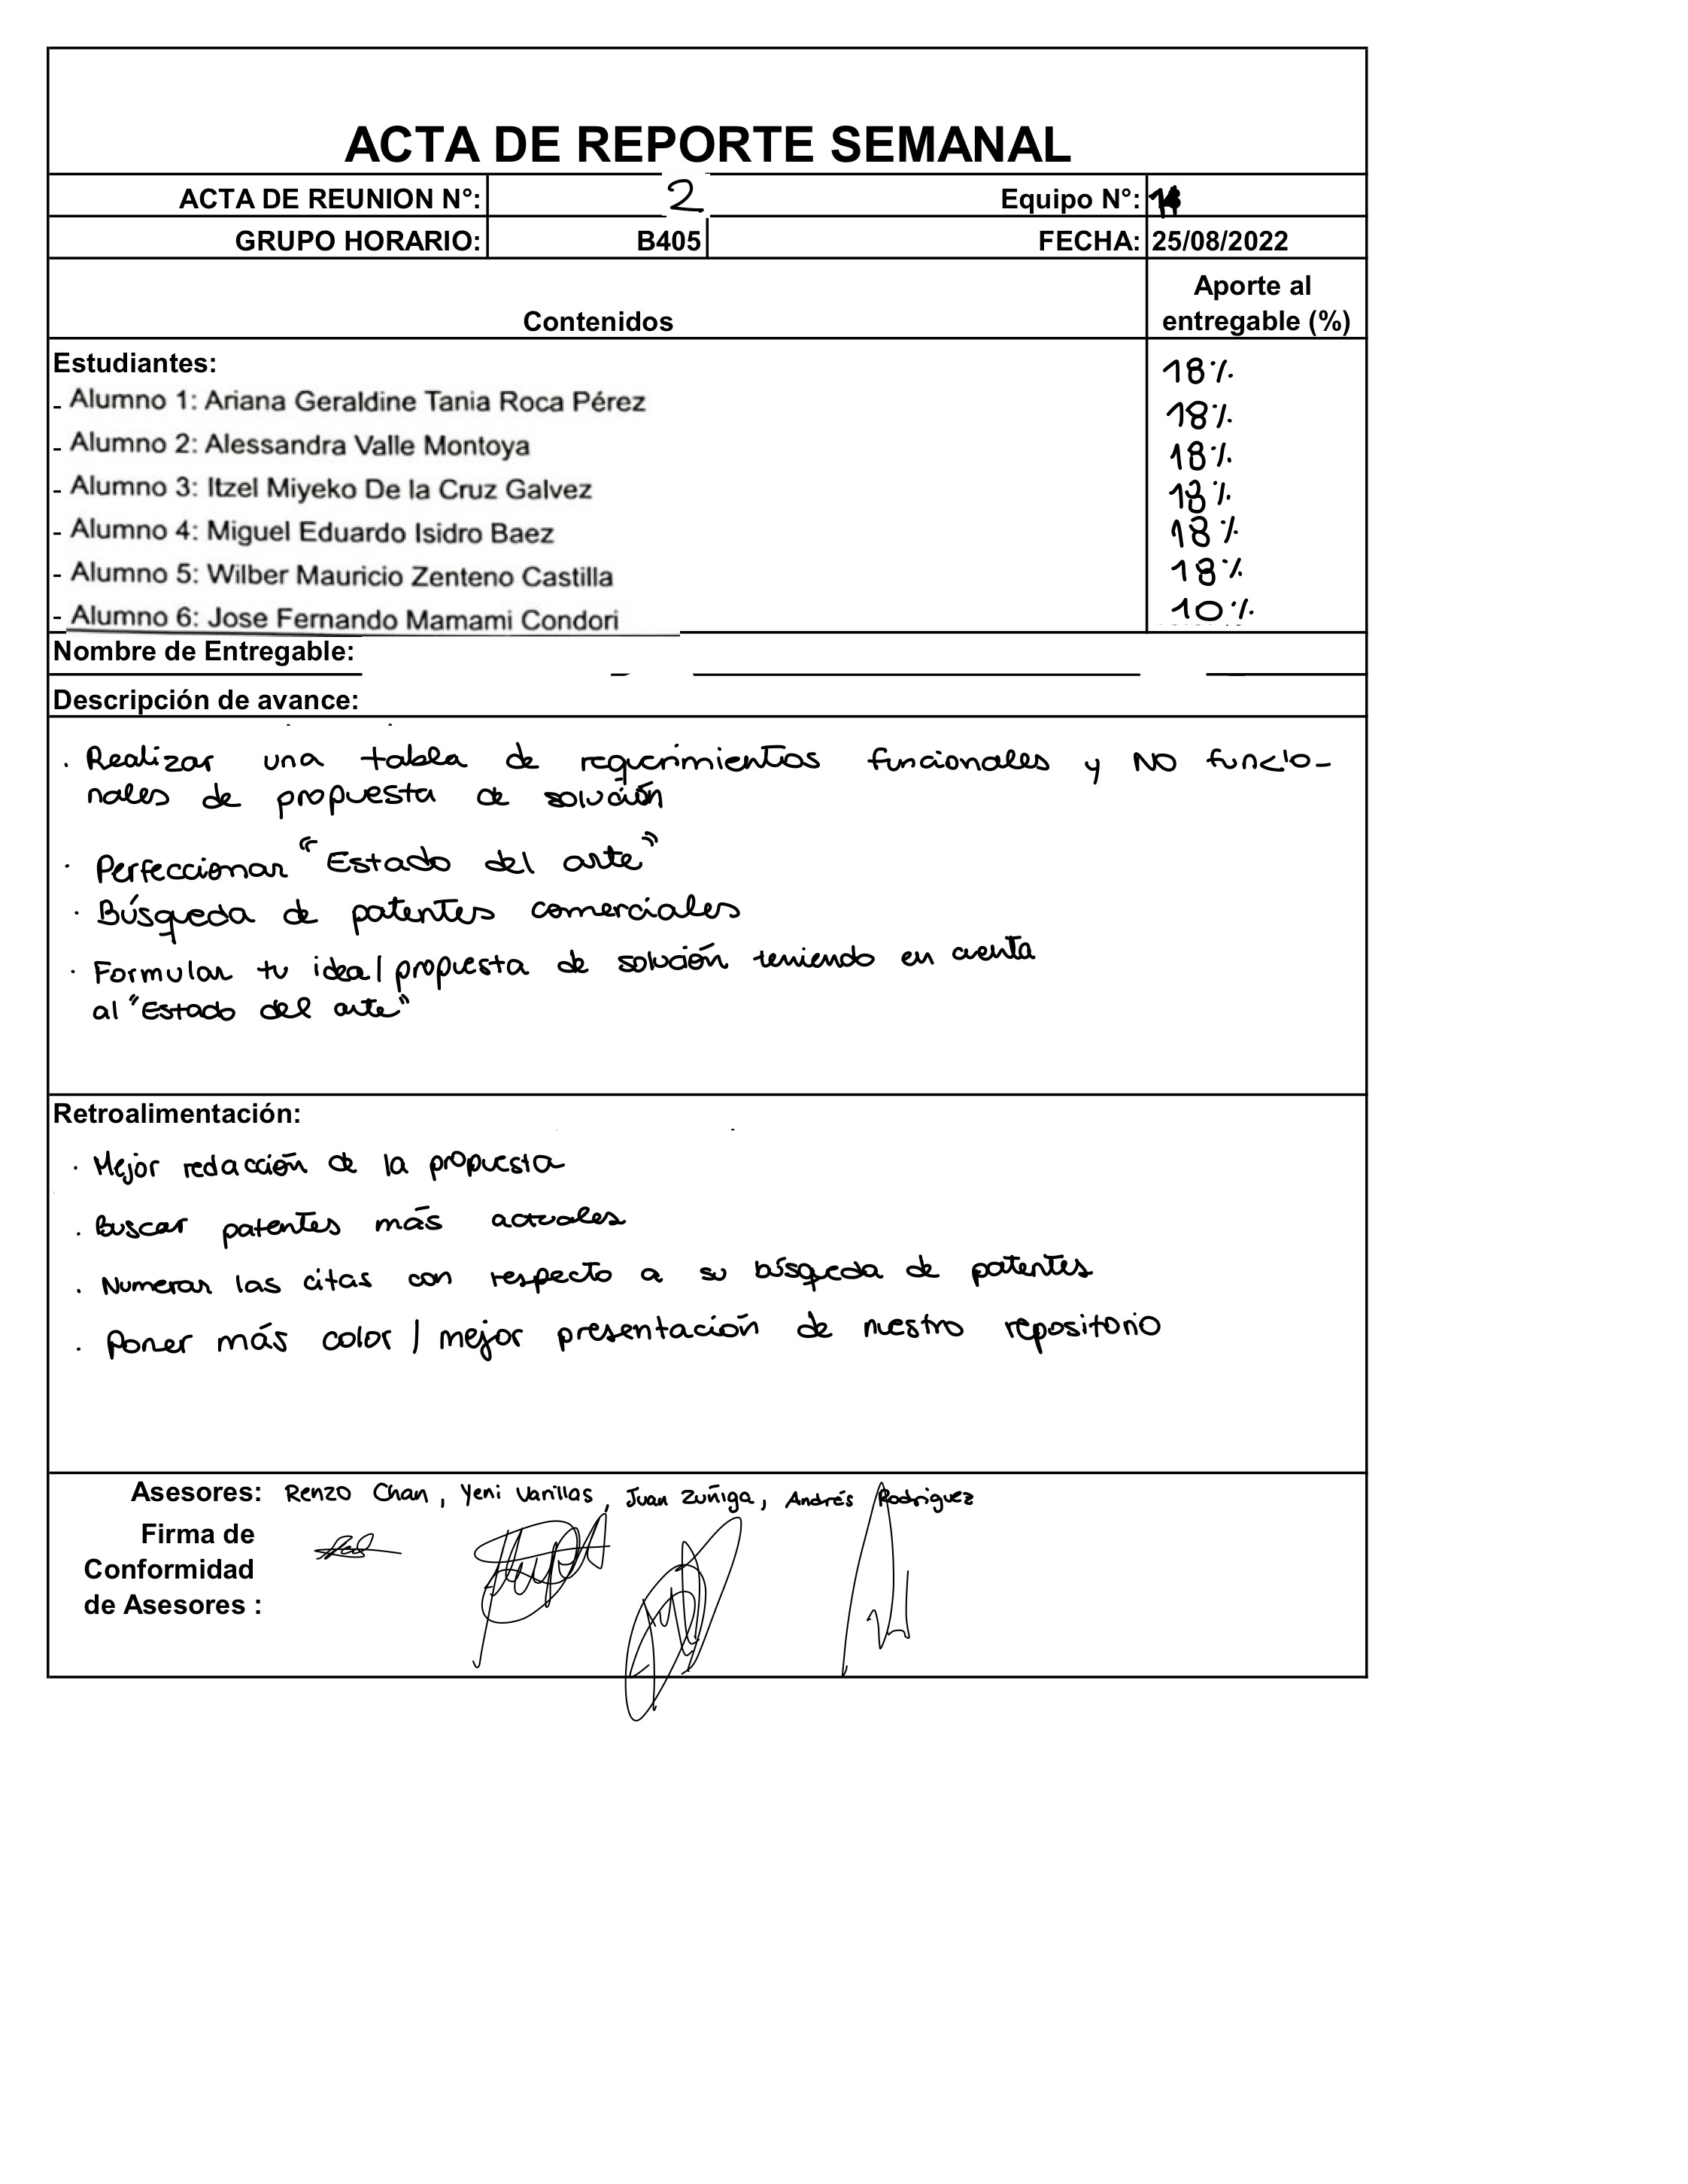 ACTA DE REPORTE SEMANAL
ACTA DE REUNION N°: 2 Equipo N°:
GRUPO HORARIO: B405 FECHA: 25/08/2022
Contenidos Aporte al
entregable (%)
Estudiantes: 18%
- Alumno 1: Ariana Geraldine Tania Roca Pérez 18%
- Alumno 2: Alessandra Valle Montoya 18%
- Alumno 3: Itzel Miyeko De la Cruz Galvez 18%
- Alumno 4: Miguel Eduardo Isidro Baez 18%
- Alumno 5: Wilber Mauricio Zenteno Castilla 18%
- Alumno 6: Jose Fernando Mamami Condori 10%
Nombre de Entregable:
Descripción de avance:
· Realizar una tabla de requerimientos funcionales y NO funcio-
nales de propuesta de solución
· Perfeccionar "Estado del arte"
· Búsqueda de patentes comerciales
· Formular tu idea/propuesta de solución teniendo en cuenta
al "Estado del arte"
Retroalimentación:
· Mejor redacción de la propuesta
· Buscar patentes más actuales
· Numerar las citas con respecto a su búsqueda de patentes
· Poner más color / mejor presentación de nuestro repositorio
Asesores: Renzo Chan, Yeni Varillas, Juan Zuñiga, Andrés Rodriguez
Firma de
Conformidad
de Asesores :